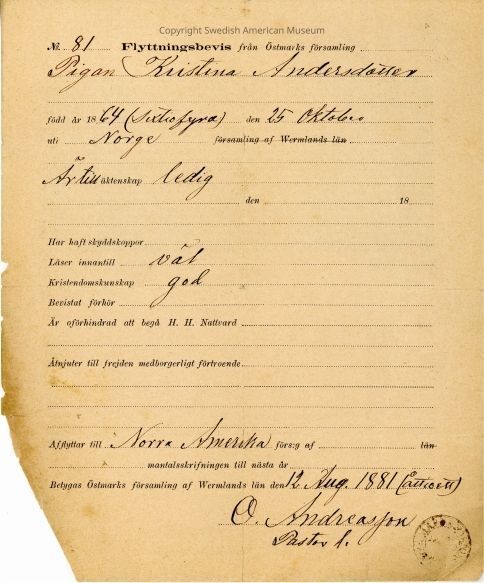 Copyright Swedish American Museum
№. 81 Flyttningsbevis från Östmarks församling
Pigan Kristina Andersdotter
född år 1864 (Sextiofyra) den 25 Oktober
uti Norge församling af Wermlands län
Är till äktenskap ledig
den 18
Har haft skyddskoppor
Läser innantill väl
Kristendomskunskap god
Bevistat förhör
Är oförhindrad att begå H. H. Nattvard
Åtnjuter till frejden medborgerligt förtroende
Afflyttar till Norra Amerika förs:g af län
mantalsskrifningen till nästa år
Betygas Östmarks församling af Wermlands län den 12 Aug. 1881 (Ettoett)
O. Andreasson
Pastor